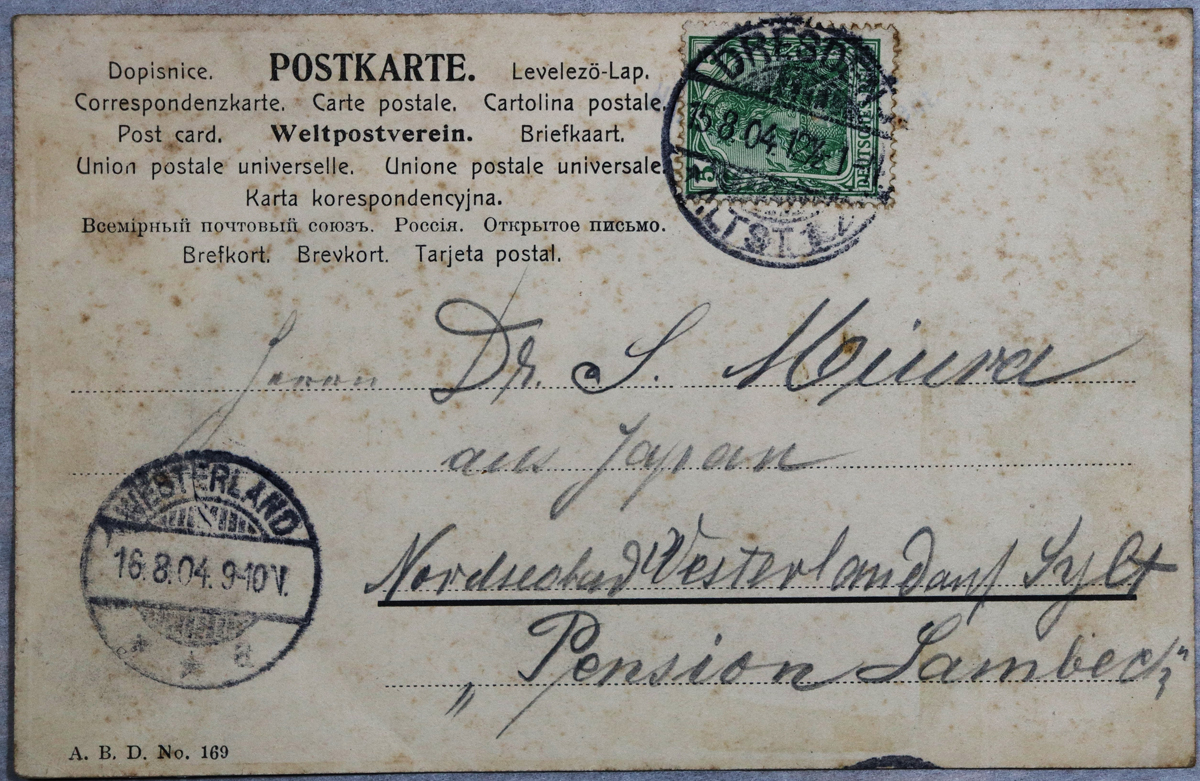 Dopisnice. POSTKARTE. Levelező-Lap.
Correspondenzkarte. Carte postale. Cartolina postale.
Post card. Weltpostverein. Briefkaart.
Union postale universelle. Unione postale universale.
Karta korespondencyjna.
Всемірный почтовый союзъ. Россія. Открытое письмо.
Brefkort. Brevkort. Tarjeta postal.
DRESDEN
15.8.04. 12½-1 N
ALTST. 1
5
DEUTSCHES
Herrn Dr. S. Miura
aus Japan
Nordseebad Westerland auf Sylt
„Pension Lambeck"
WESTERLAND
16.8.04. 9-10 V.
* * a
A. B. D. No. 169